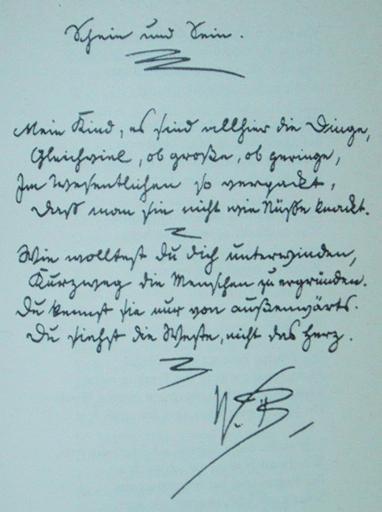 Schein und Sein.
Mein Kind, es sind allhier die Dinge,
Gleichviel, ob große, ob geringe,
Im Wesentlichen so verpackt,
Daß man sie nicht wie Nüsse knackt.
Wie wolltest du dich unterwinden,
Kurzweg die Menschen zu ergründen.
Du kennst sie nur von außenwärts.
Du siehst die Weste, nicht das Herz.
W. B.